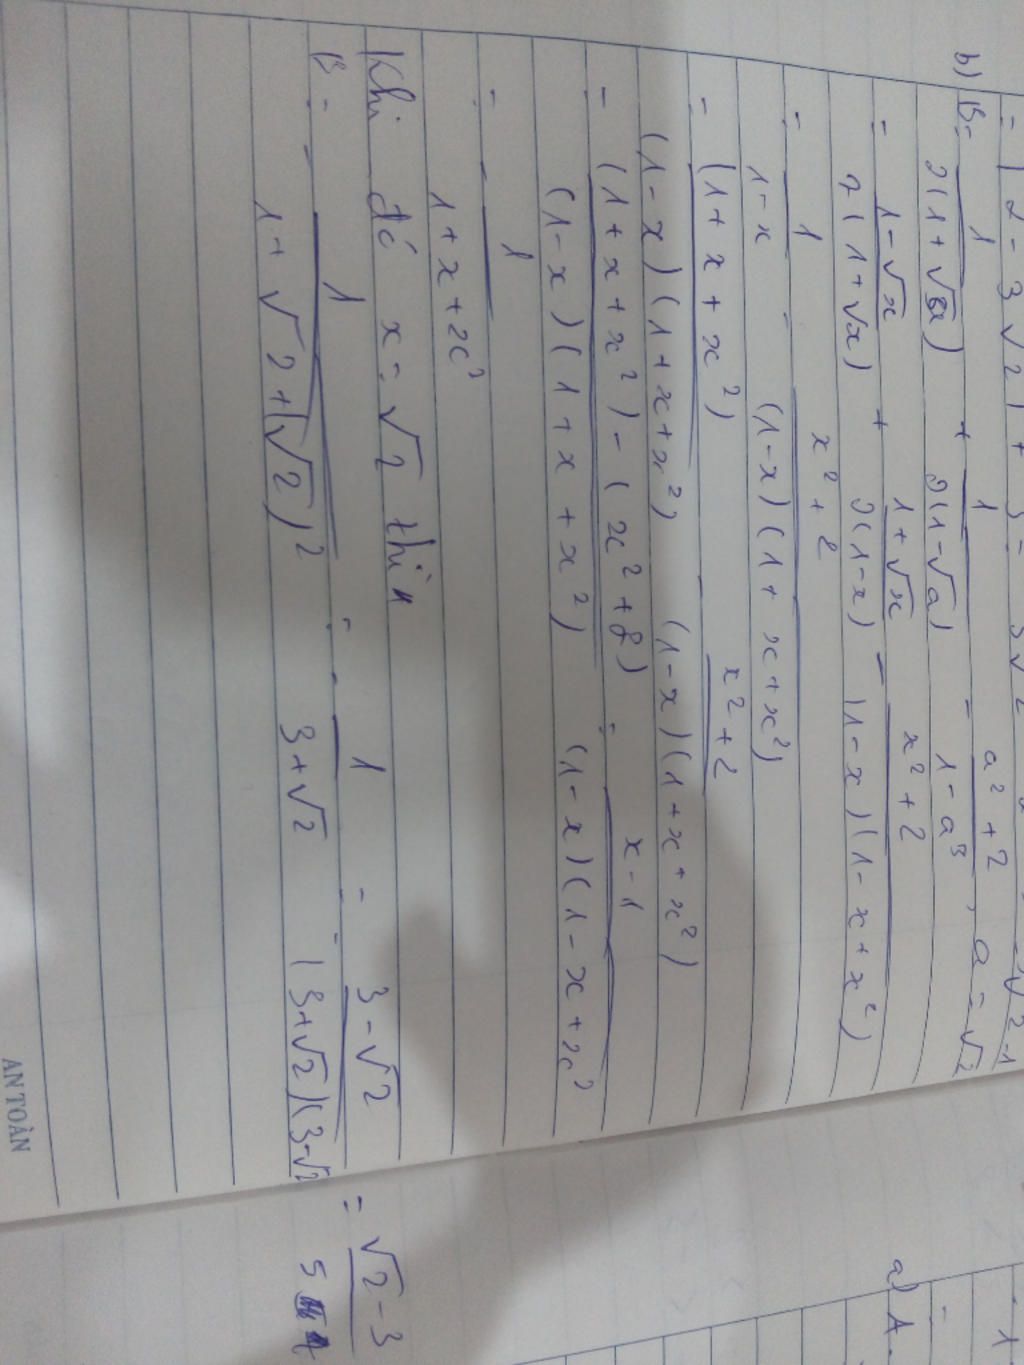 = | 2 - 3√2 | +
b) B = 1/2(1+√a) + 1/2(1-√a) - a² + 2/1 - a³, a = √2
= 1-√x/2(1+√x) + 1+√x/2(1-x) - x² + 2/(1-x)(1-x+x²)
= 1/1-x - x² + 2/(1-x)(1+x+x²)
= (1+x+x²)/(1-x)(1+x+x²) x² + 2/(1-x)(1+x+x²)
= (1+x+x²) - (x²+2)/(1-x)(1+x+x²) = x-1/(1-x)(1-x+x²
= - 1/1+x+x²
Khi đó x = √2 thìn
B = - 1/1+√2+(√2)² = - 1/3+√2 = - 3-√2/(3+√2)(3-√2 = √2-3/5
AN TOÀN
a) A